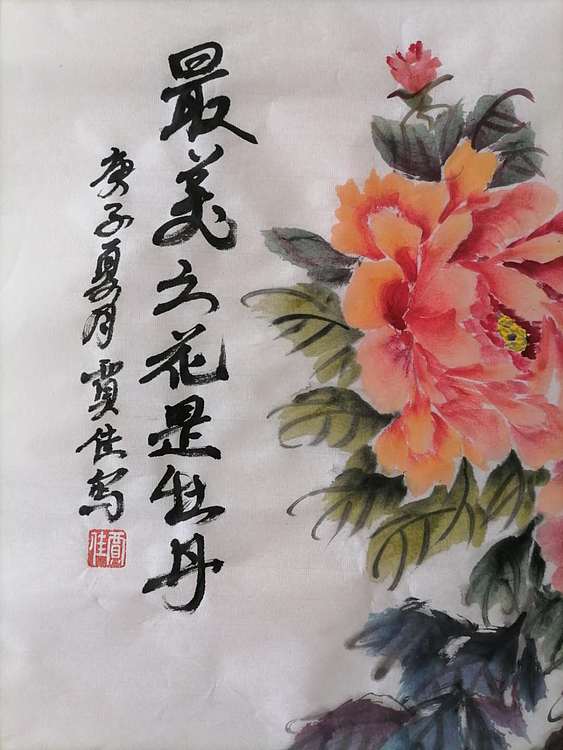 最美之花是牡丹
庚子夏月賈佳写
賈佳